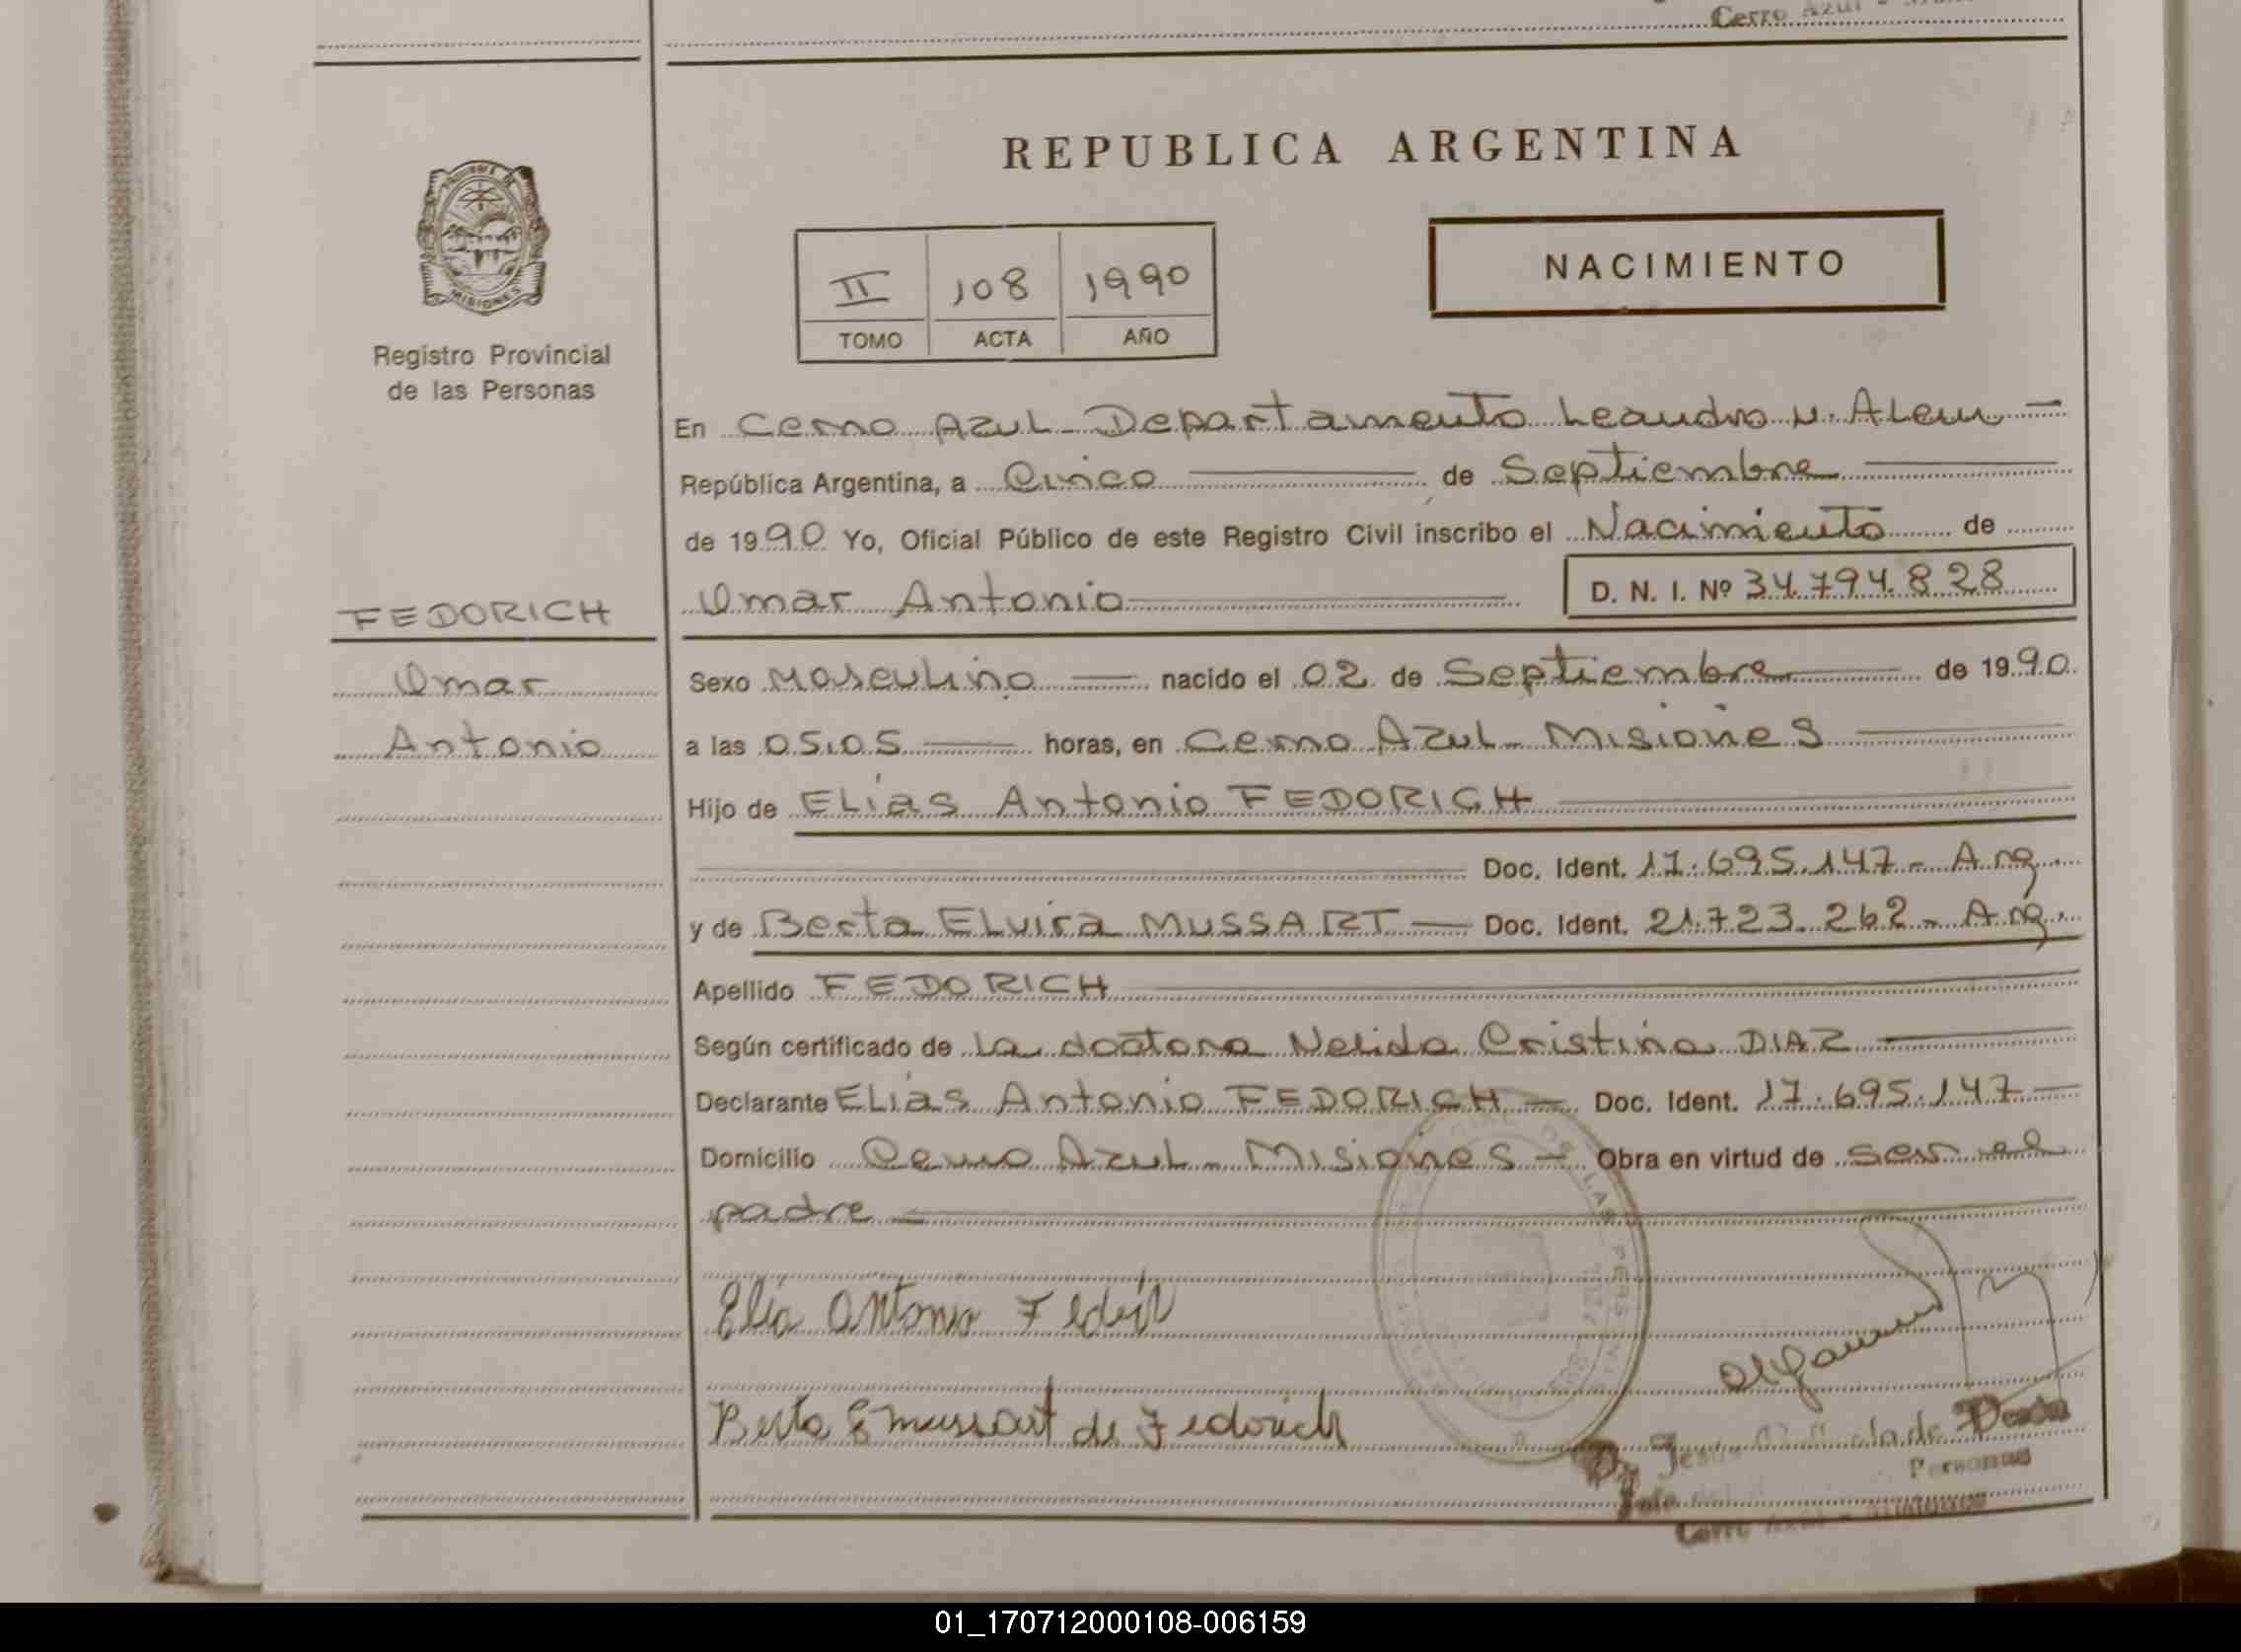 Cerro Azul -
REPUBLICA ARGENTINA
MISIONES
Registro Provincial
de las Personas
II 108 1990
TOMO ACTA AÑO
NACIMIENTO
En Cerro Azul - Departamento Leandro N. Alem -
República Argentina, a Cinco de Septiembre
de 1990 Yo, Oficial Público de este Registro Civil inscribo el Nacimiento de
Omar Antonio D. N. I. Nº 34.794.828
FEDORICH
Omar
Antonio
Sexo Masculino nacido el 02 de Septiembre de 1990
a las 05.05 horas, en Cerro Azul - Misiones
Hijo de Elías Antonio FEDORICH
Doc. Ident. 17.695.147 - Arg.
y de Berta Elvira MUSSART Doc. Ident. 21.723.262 - Arg.
Apellido FEDORICH
Según certificado de la doctora Nelida Cristina DIAZ
Declarante Elías Antonio FEDORICH - Doc. Ident. 17.695.147
Domicilio Cerro Azul - Misiones - Obra en virtud de ser el
padre
Elia Antonio
Berta E Mussart de Fedorich
Personas
Cerro
01_170712000108-006159